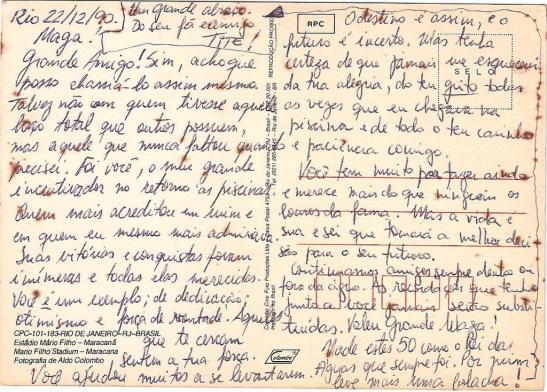 Rio 22/12/90.
Um grande abraço
Do seu fã e amigo
TITE.
Maga!
Grande Amigo! Sim, acho que
posso chamá-lo assim mesmo
Talvez não com quem tivesse aquele
laço total que outros possuem,
mas aquele que nunca faltou quando
precisei. Foi você, o meu grande
incentivador no retorno às piscinas
Quem mais acreditou em mim e
em quem eu mesmo mais admirava.
Suas vitórias e conquistas foram
inúmeras e todas elas merecidas.
Você é um exemplo, de dedicação,
otimismo e força de vontade. Aqueles
que te cercam
sentem a tua força.
Você ajudou muitos a se levantarem.
CPC-101-183-RIO DE JANEIRO-RJ-BRASIL
Estádio Mário Filho - Maracanã
Mario Filho Stadium - Maracana
Fotografia de Aldo Colombo
colombo
RPC
SELO
O destino é assim, e o
futuro é incerto. Mas tenha
certeza de que jamais me esquecerei
da tua alegria, do teu grito todas
as vezes que eu chegava na
piscina e de todo o teu carinho
e paciência comigo.
Você tem muito por fazer ainda
e merece mais do que ninguém os
louros da fama. Mas a vida é
sua e sei que tomará a melhor deci
são para o seu futuro.
Continuamos amigos sempre dentro ou
fora da água. As recordações que tenho
junto a você jamais serão substi
tuídas. Valeu Grande Maga!
Nade estes 50 como o Rei das
Águas que sempre foi. Por mim
leve mais uma bolacha!